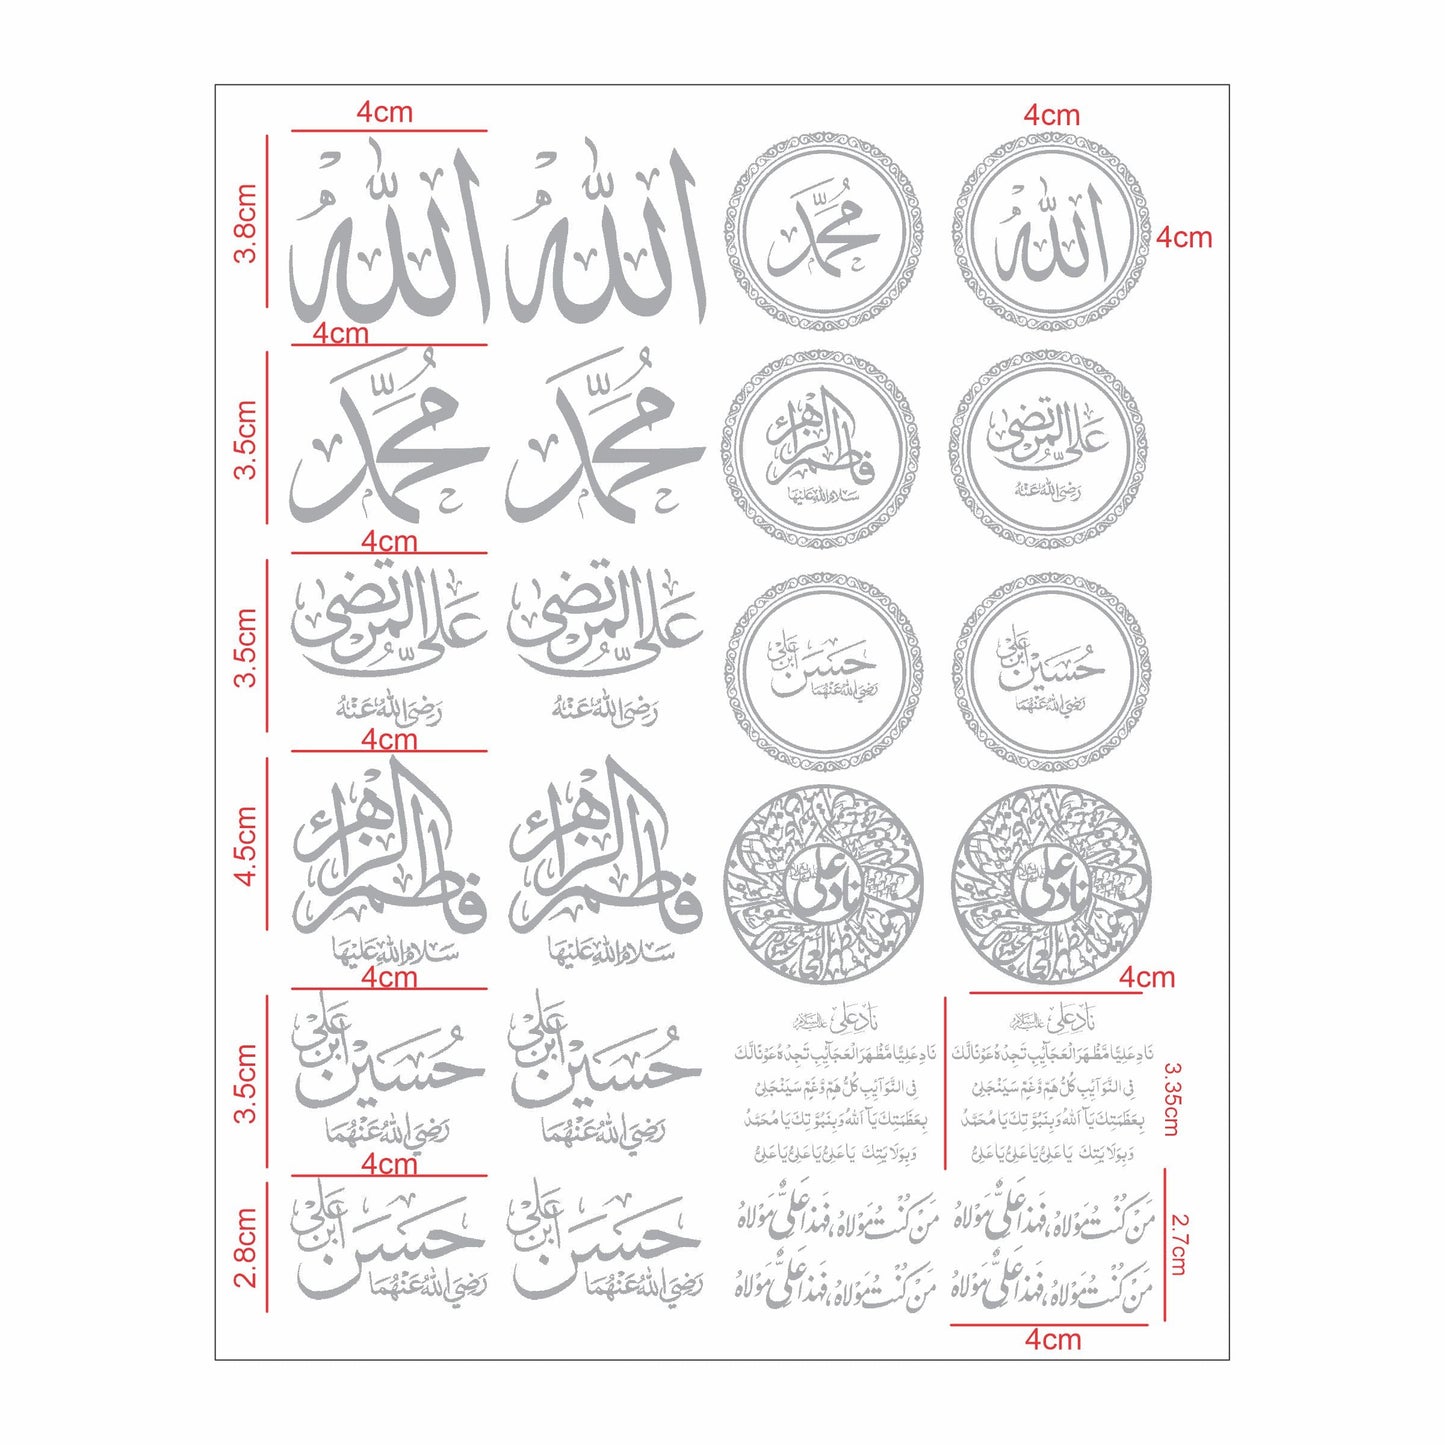 4cm
4cm
3.8cm
اللهُ
اللهُ
مُحَمَّد
اللهُ
4cm
4cm
3.5cm
مُحَمَّد
مُحَمَّد
فاطمۃ الزہراء
سَلَامُ اللّٰهِ عَلَيْهَا
عَلِیُّ المُرتضٰی
رَضِیَ اللّٰهُ عَنْهُ
4cm
3.5cm
عَلِیُّ المُرتضٰی
رَضِیَ اللّٰهُ عَنْهُ
عَلِیُّ المُرتضٰی
رَضِیَ اللّٰهُ عَنْهُ
حَسَن ابنِ عَلِی
رَضِیَ اللّٰهُ عَنْهُمَا
حُسَیْن ابنِ عَلِی
رَضِیَ اللّٰهُ عَنْهُمَا
4cm
4.5cm
فاطمۃ الزہراء
سَلَامُ اللّٰهِ عَلَيْهَا
فاطمۃ الزہراء
سَلَامُ اللّٰهِ عَلَيْهَا
نادِ علی
نادِ علی
4cm
4cm
3.5cm
حُسَیْن ابنِ عَلِی
رَضِیَ اللّٰهُ عَنْهُمَا
حُسَیْن ابنِ عَلِی
رَضِیَ اللّٰهُ عَنْهُمَا
نَادِ عَلِی علیہ السلام
نَادِ عَلِیًّا مَّظْهَرَ الْعَجَآئِبِ تَجِدْهُ عَوْنًا لَّكَ
فِی النَّوَآئِبِ كُلُّ هَمٍّ وَّغَمٍّ سَيَنْجَلِیْ
بِعَظَمَتِكَ يَآ اَللّٰهُ وَبِنُبُوَّتِكَ يَا مُحَمَّدُ
وَبِوَلَايَتِكَ يَا عَلِیُّ يَا عَلِیُّ يَا عَلِیُّ
نَادِ عَلِی علیہ السلام
نَادِ عَلِیًّا مَّظْهَرَ الْعَجَآئِبِ تَجِدْهُ عَوْنًا لَّكَ
فِی النَّوَآئِبِ كُلُّ هَمٍّ وَّغَمٍّ سَيَنْجَلِیْ
بِعَظَمَتِكَ يَآ اَللّٰهُ وَبِنُبُوَّتِكَ يَا مُحَمَّدُ
وَبِوَلَايَتِكَ يَا عَلِیُّ يَا عَلِیُّ يَا عَلِیُّ
3.35cm
4cm
2.8cm
حَسَن ابنِ عَلِی
رَضِیَ اللّٰهُ عَنْهُمَا
حَسَن ابنِ عَلِی
رَضِیَ اللّٰهُ عَنْهُمَا
مَنْ كُنْتُ مَوْلَاهُ، فَهٰذَا عَلِیٌّ مَوْلَاهُ
مَنْ كُنْتُ مَوْلَاهُ، فَهٰذَا عَلِیٌّ مَوْلَاهُ
مَنْ كُنْتُ مَوْلَاهُ، فَهٰذَا عَلِیٌّ مَوْلَاهُ
مَنْ كُنْتُ مَوْلَاهُ، فَهٰذَا عَلِیٌّ مَوْلَاهُ
2.7cm
4cm